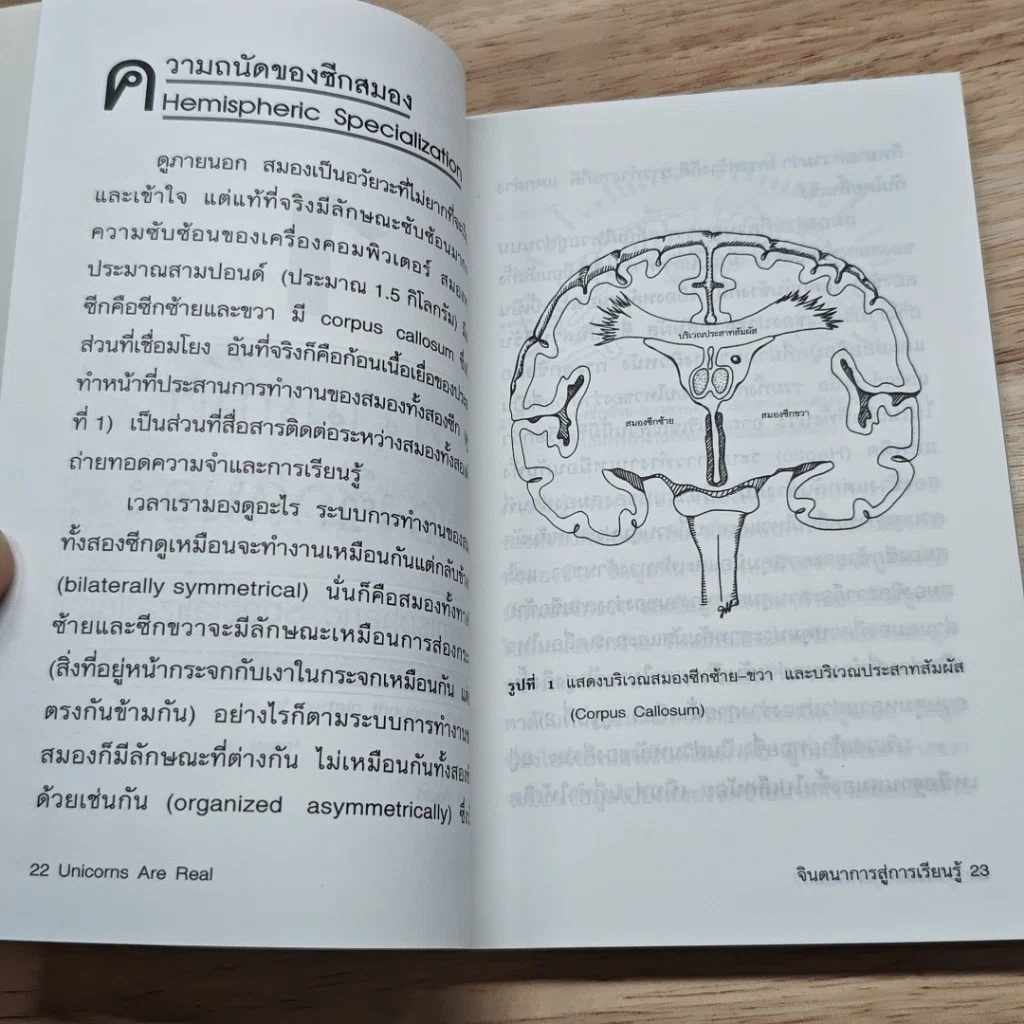 ความถนัดของซีกสมอง
Hemispheric Specialization
ดูภายนอก สมองเป็นอวัยวะที่ไม่ยากที่จะ
และเข้าใจ แต่แท้ที่จริงมีลักษณะซับซ้อนมาก
ความซับซ้อนของเครื่องคอมพิวเตอร์ สมอง
ประมาณสามปอนด์ (ประมาณ 1.5 กิโลกรัม)
ซีกคือซีกซ้ายและขวา มี corpus callosum
ส่วนที่เชื่อมโยง อันที่จริงก็คือก้อนเนื้อเยื่อของ
ทำหน้าที่ประสานการทำงานของสมองทั้งสองซีก
ที่ 1) เป็นส่วนที่สื่อสารติดต่อระหว่างสมองทั้งสอง
ถ่ายทอดความจำและการเรียนรู้
เวลาเรามองดูอะไร ระบบการทำงานของ
ทั้งสองซีกดูเหมือนจะทำงานเหมือนกันแต่กลับ
(bilaterally symmetrical) นั่นก็คือสมองทั้ง
ซ้ายและซีกขวาจะมีลักษณะเหมือนการส่อง
(สิ่งที่อยู่หน้ากระจกกับเงาในกระจกเหมือนกัน
ตรงกันข้ามกัน) อย่างไรก็ตามระบบการทำงาน
สมองก็มีลักษณะที่ต่างกัน ไม่เหมือนกันทั้งสอง
ด้วยเช่นกัน (organized asymmetrically)
22 Unicorns Are Real
บริเวณประสาทสัมผัส
สมองซีกซ้าย
สมองซีกขวา
รูปที่ 1 แสดงบริเวณสมองซีกซ้าย-ขวา และบริเวณประสาทสัมผัส
(Corpus Callosum)
จินตนาการสู่การเรียนรู้ 23